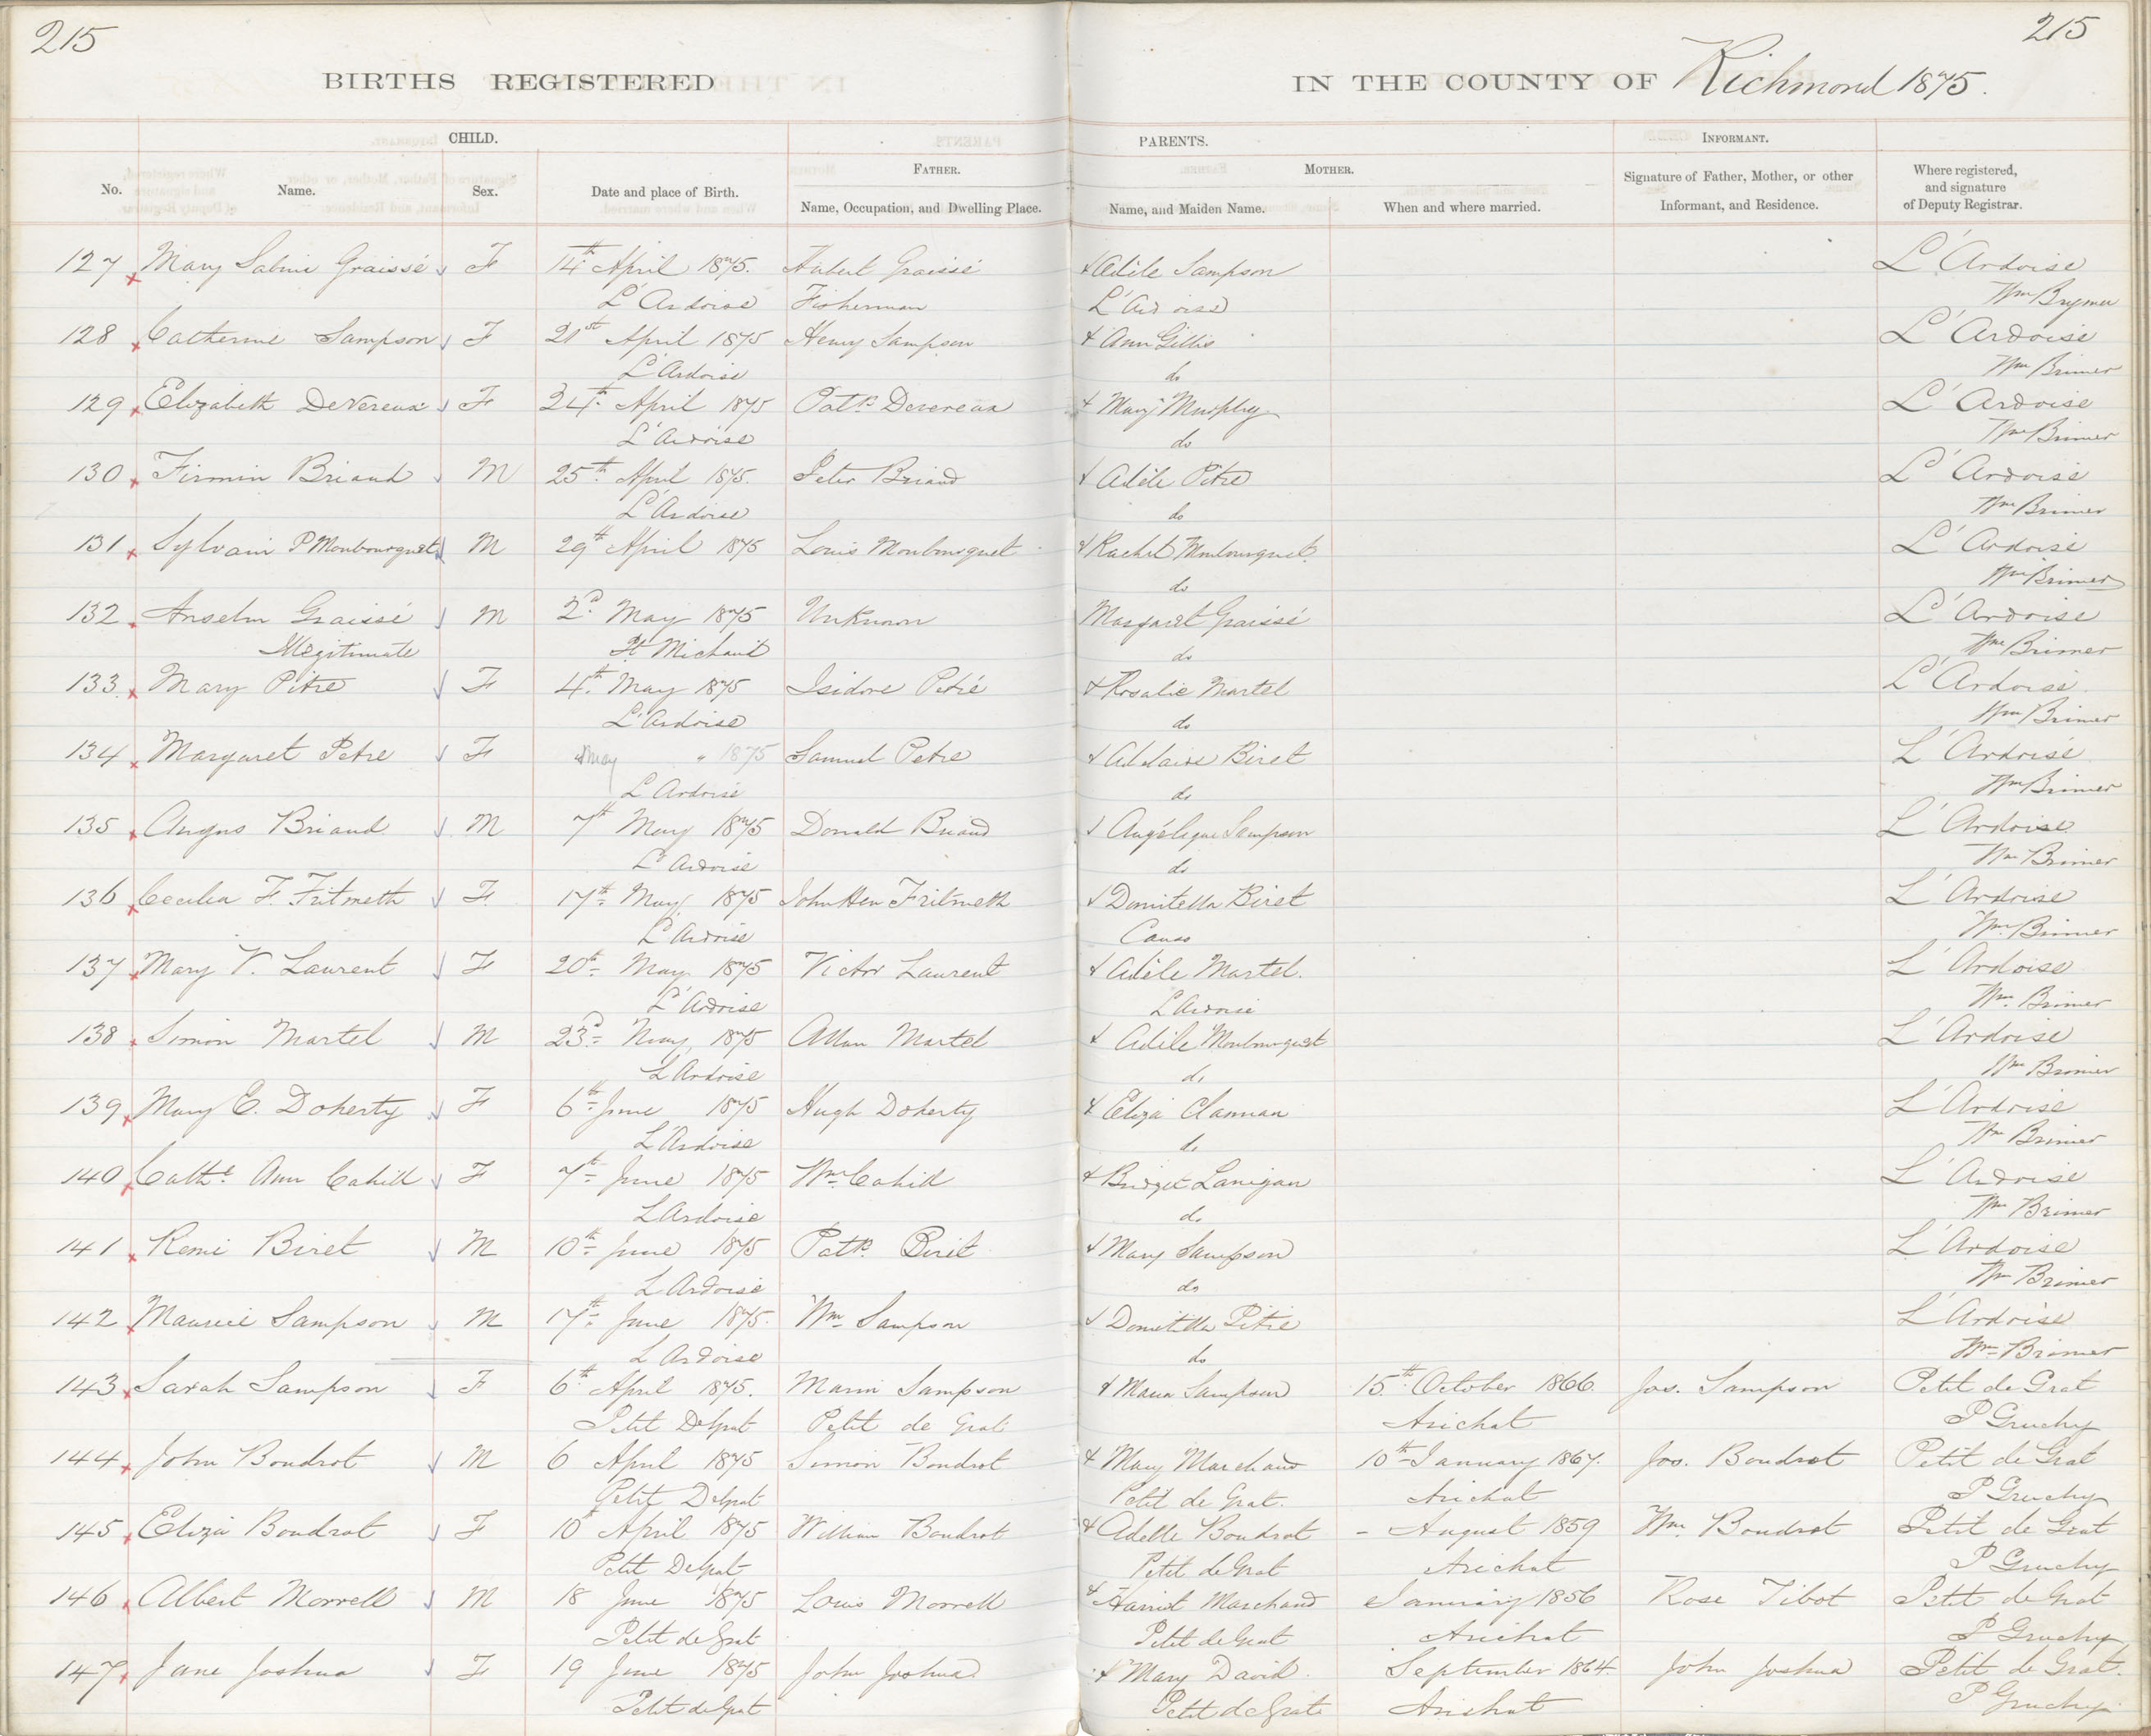 215
215
BIRTHS REGISTERED
IN THE COUNTY OF Richmond 1875.
CHILD.
PARENTS.
INFORMANT.
No. Name. Sex. Date and place of Birth.
FATHER.
Name, Occupation, and Dwelling Place.
MOTHER.
Name, and Maiden Name. When and where married.
Signature of Father, Mother, or other
Informant, and Residence.
Where registered,
and signature
of Deputy Registrar.
127 Mary Sabine Graissé F 14th April 1875. Hubert Graissé & Adèle Sampson L'Ardoise
L'Ardoise Fisherman L'Ardoise Wm Brymer
128 Catherine Sampson F 21st April 1875 Henry Sampson & Ann Gillis L'Ardoise
L'Ardoise do Wm Brimer
129 Elizabeth DeVereux F 24th April 1875 Patk. Devereux & Mary Murphy L'Ardoise
L'Ardoise do Wm Brimer
130 Firmin Briand M 25th April 1875. Peter Briand & Adèle Pitre L'Ardoise
L'Ardoise do Wm Brimer
131 Sylvain P Monbourquet M 29th April 1875 Louis Monbourquet & Rachel Monbourquet L'Ardoise
do Wm Brimer
132 Anselm Graissé M 2d. May 1875 Unknown Margaret Graissé L'Ardoise
Illegitimate Pt Michaud do Wm Brimer
133. Mary Pitre F 4th. May 1875 Isidore Petré & Rosalie Martel L'Ardoise
L'Ardoise do Wm Brimer
134 Margaret Petre F May " 1875 Samuel Petre & Adelaide Biret L'Ardoise
L'Ardoise do Wm Brimer
135 Angus Briand M 7th May 1875 Donald Briand & Angélique Sampson L'Ardoise
L'Ardoise do Wm Brimer
136 Cecilia F. Fritmeth F 17th May 1875 John Hen Fritmeth & Domitella Biret L'Ardoise
L'Ardoise Canso Wm Brimer
137 Mary V. Laurent F 20th May 1875 Victor Laurent & Adèle Martel. L'Ardoise
L'Ardoise L'Ardoise Wm. Brimer
138 Simon Martel M 23d May 1875 Allan Martel & Adèle Monbourquet L'Ardoise
L'Ardoise do Wm Brimer
139 Mary E. Doherty F 6th June 1875 Hugh Doherty & Eliza Clannan L'Ardoise
L'Ardoise do Wm Brimer
140 Cathe Ann Cahill F 7th June 1875 Wm Cahill & Bridget Lanigan L'Ardoise
L'Ardoise do Wm Brimer
141 Remi Biret M 10th June 1875 Patk. Biret & Mary Sampson L'Ardoise
L'Ardoise do Wm Brimer
142 Maurice Sampson M 17th June 1875. Wm Sampson & Domitilla Pitre L'Ardoise
L'Ardoise do Wm Brimer
143 Sarah Sampson F 6th April 1875. Marin Sampson & Maria Sampson 15th October 1866. Jas. Sampson Petit de Grat
Petit DeGrat Petit de Grat Arichat P Gruchy
144 John Boudrot M 6 April 1875 Simon Boudrot & Mary Marchand 10th January 1867. Jos. Boudrot Petit de Grat
Petit DeGrat Petit de Grat. Arichat P Gruchy
145 Eliza Boudrot F 10th April 1875 William Boudrot & Adelle Boudrot - August 1859 Wm. Boudrot Petit de Grat
Petit DeGrat Petit de Grat Arichat P Gruchy
146 Albert Morrell M 18 June 1875 Louis Morrell & Harriet Marchand January 1856 Rose Tibot Petit de Grat
Petit de Grat Petit de Grat Arichat P Gruchy
147 Jane Joshua F 19 June 1875 John Joshua & Mary David. September 1864 John Joshua Petit de Grat.
Petit de Grat Petit de Grat Arichat P Gruchy